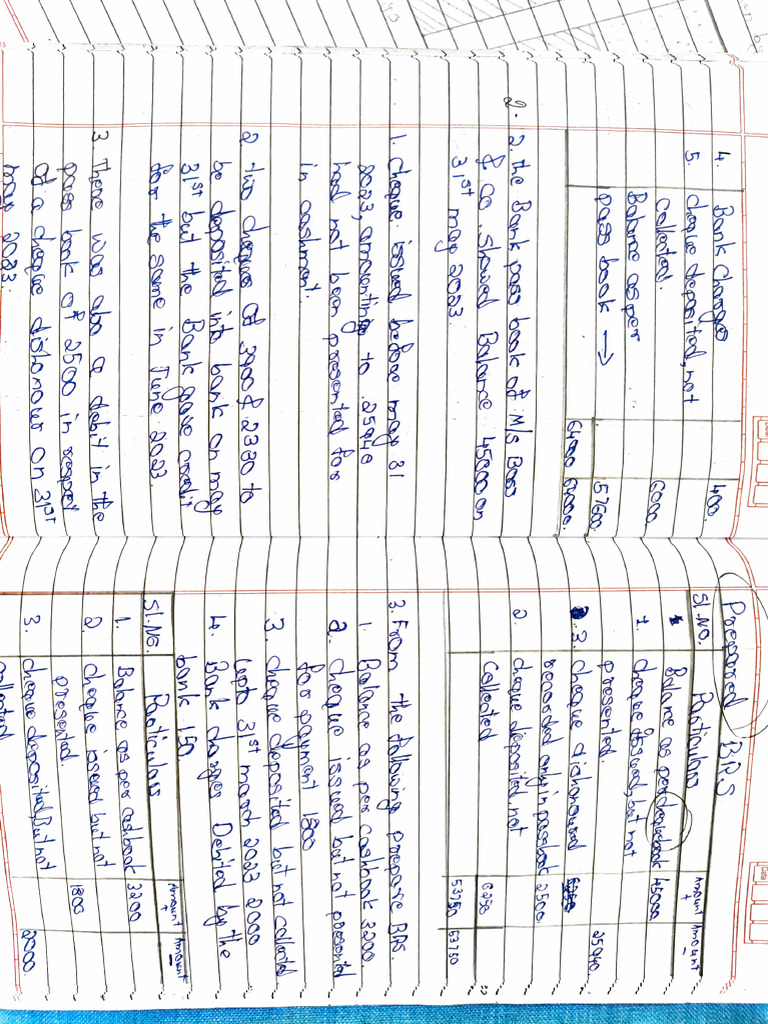 4. Bank charges 400.
5. cheque deposited, not
collected. 6000.
Balance as per
pass book → 57600.
64000 64000.
2. 2. the Bank pass book of M/S Booo
& co. showed Balance 45000 on
31st may 2023
1. cheque issued before may 31
2023, amounting to 25940
had not been presented for
in cashment.
2. two cheques of 3900 & 2350 to
be deposited into bank on may
31st but the Bank gave credit
for the same in June 2023.
3 There was also a debit in the
pass book of 2500 in respect
of a cheque dishonour on 31st
may 2023.
Prepared BRS
Sl.No. Particulars Amount + Amount -
Balance as per 45000
1. cheque issued, but not
presented. 25940.
3. cheque dishonoured
recorded only in passbook 2500.
2. cheque deposited, not
Collected 6250
53750 53750
3. From the following prepare BRS.
1. Balance as per cashbook 3200.
2. cheque issued but not presented
for payment 1800
3. cheque deposited but not collected
upto 31st march 2023 2000
4. Bank charges Debited by the
bank 150.
Sl.No. Particulars Amount + Amount -
1. Balance as per cashbook 3200
2. cheque issued but not
presented. 1800
3. cheque deposited, But not 2000.
collected